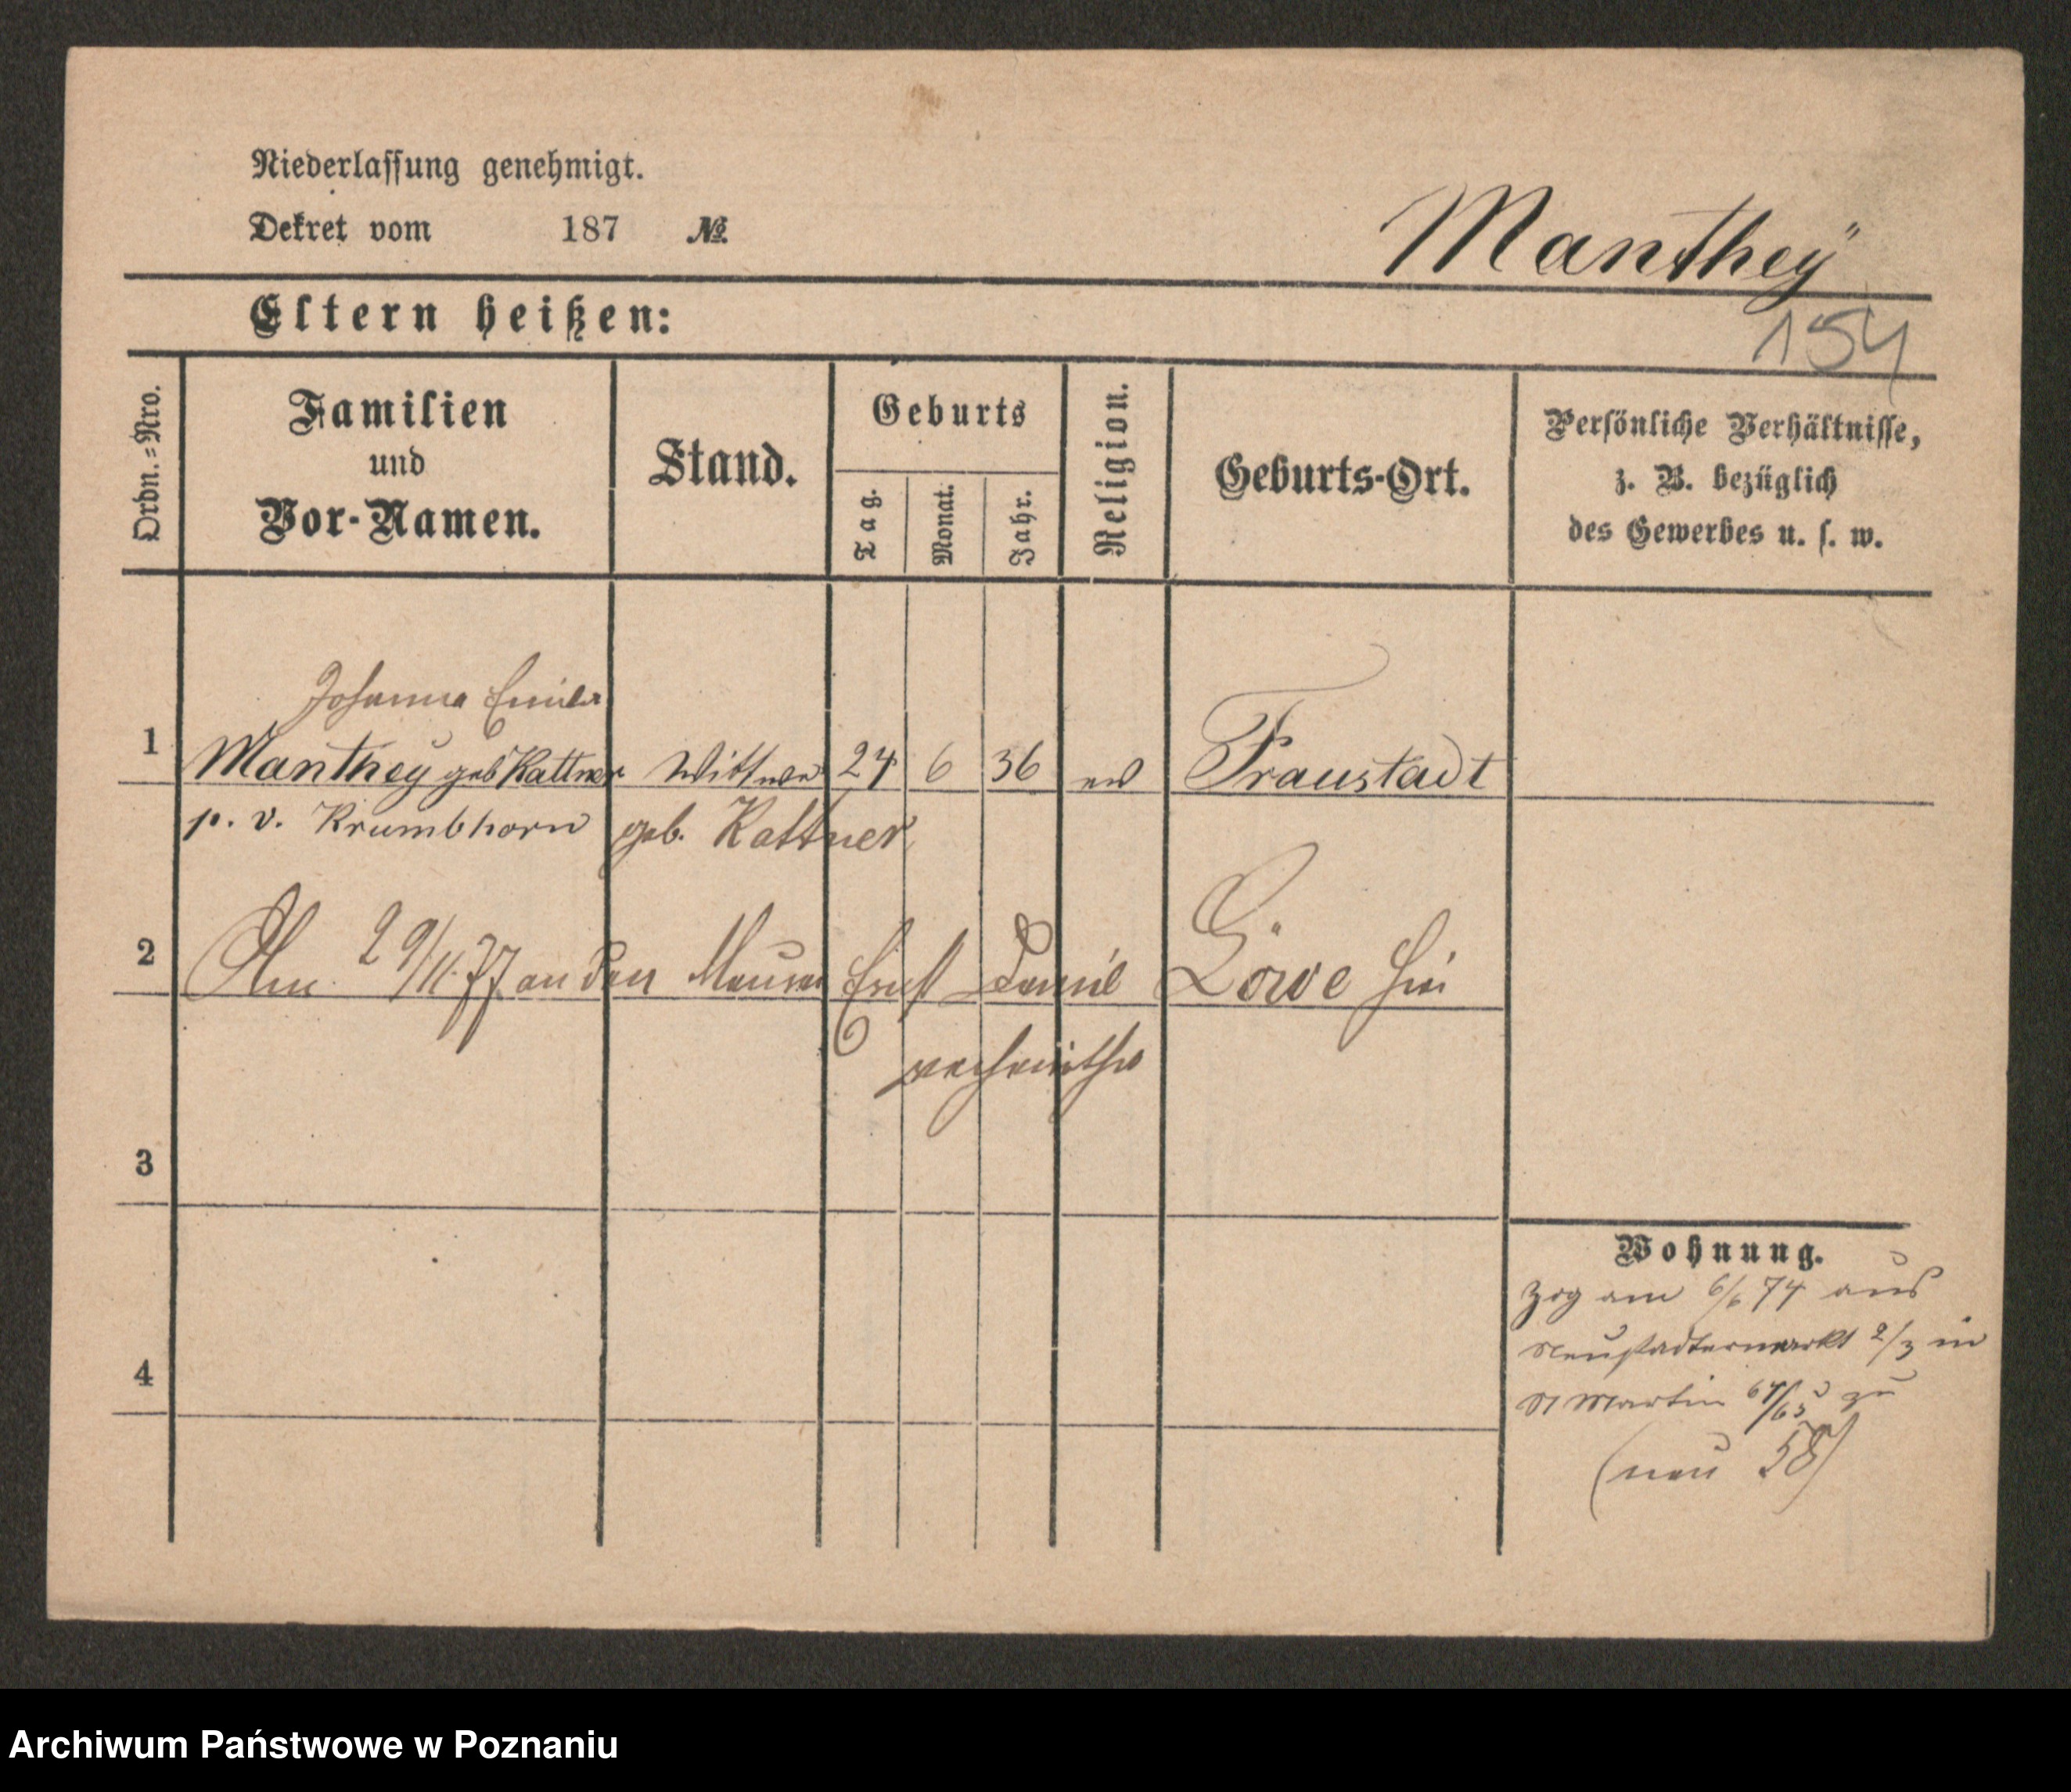 Niederlassung genehmigt.
Dekret vom 187 №
Manthey
154
Eltern heißen:
Ordn.=Nro.
Familien
und
Vor-Namen.
Stand.
Geburts
Tag.
Monat.
Jahr.
Religion.
Geburts-Ort.
Persönliche Verhältnisse,
z. B. bezüglich
des Gewerbes u. s. w.
Johanna
1 Manthey geb Kattner Wittwe 24 6 36 ev Fraustadt
p. v. Krumbhorn geb. Kattner
2 Am 29/11.77 an den Maurer Ernst Löwe hier
3
4
Wohnung.
Zog am 6/6 74 aus
Neustädtermarkt 2/3 in
St Martin 64/65 zu
(neu 58)
Archiwum Państwowe w Poznaniu